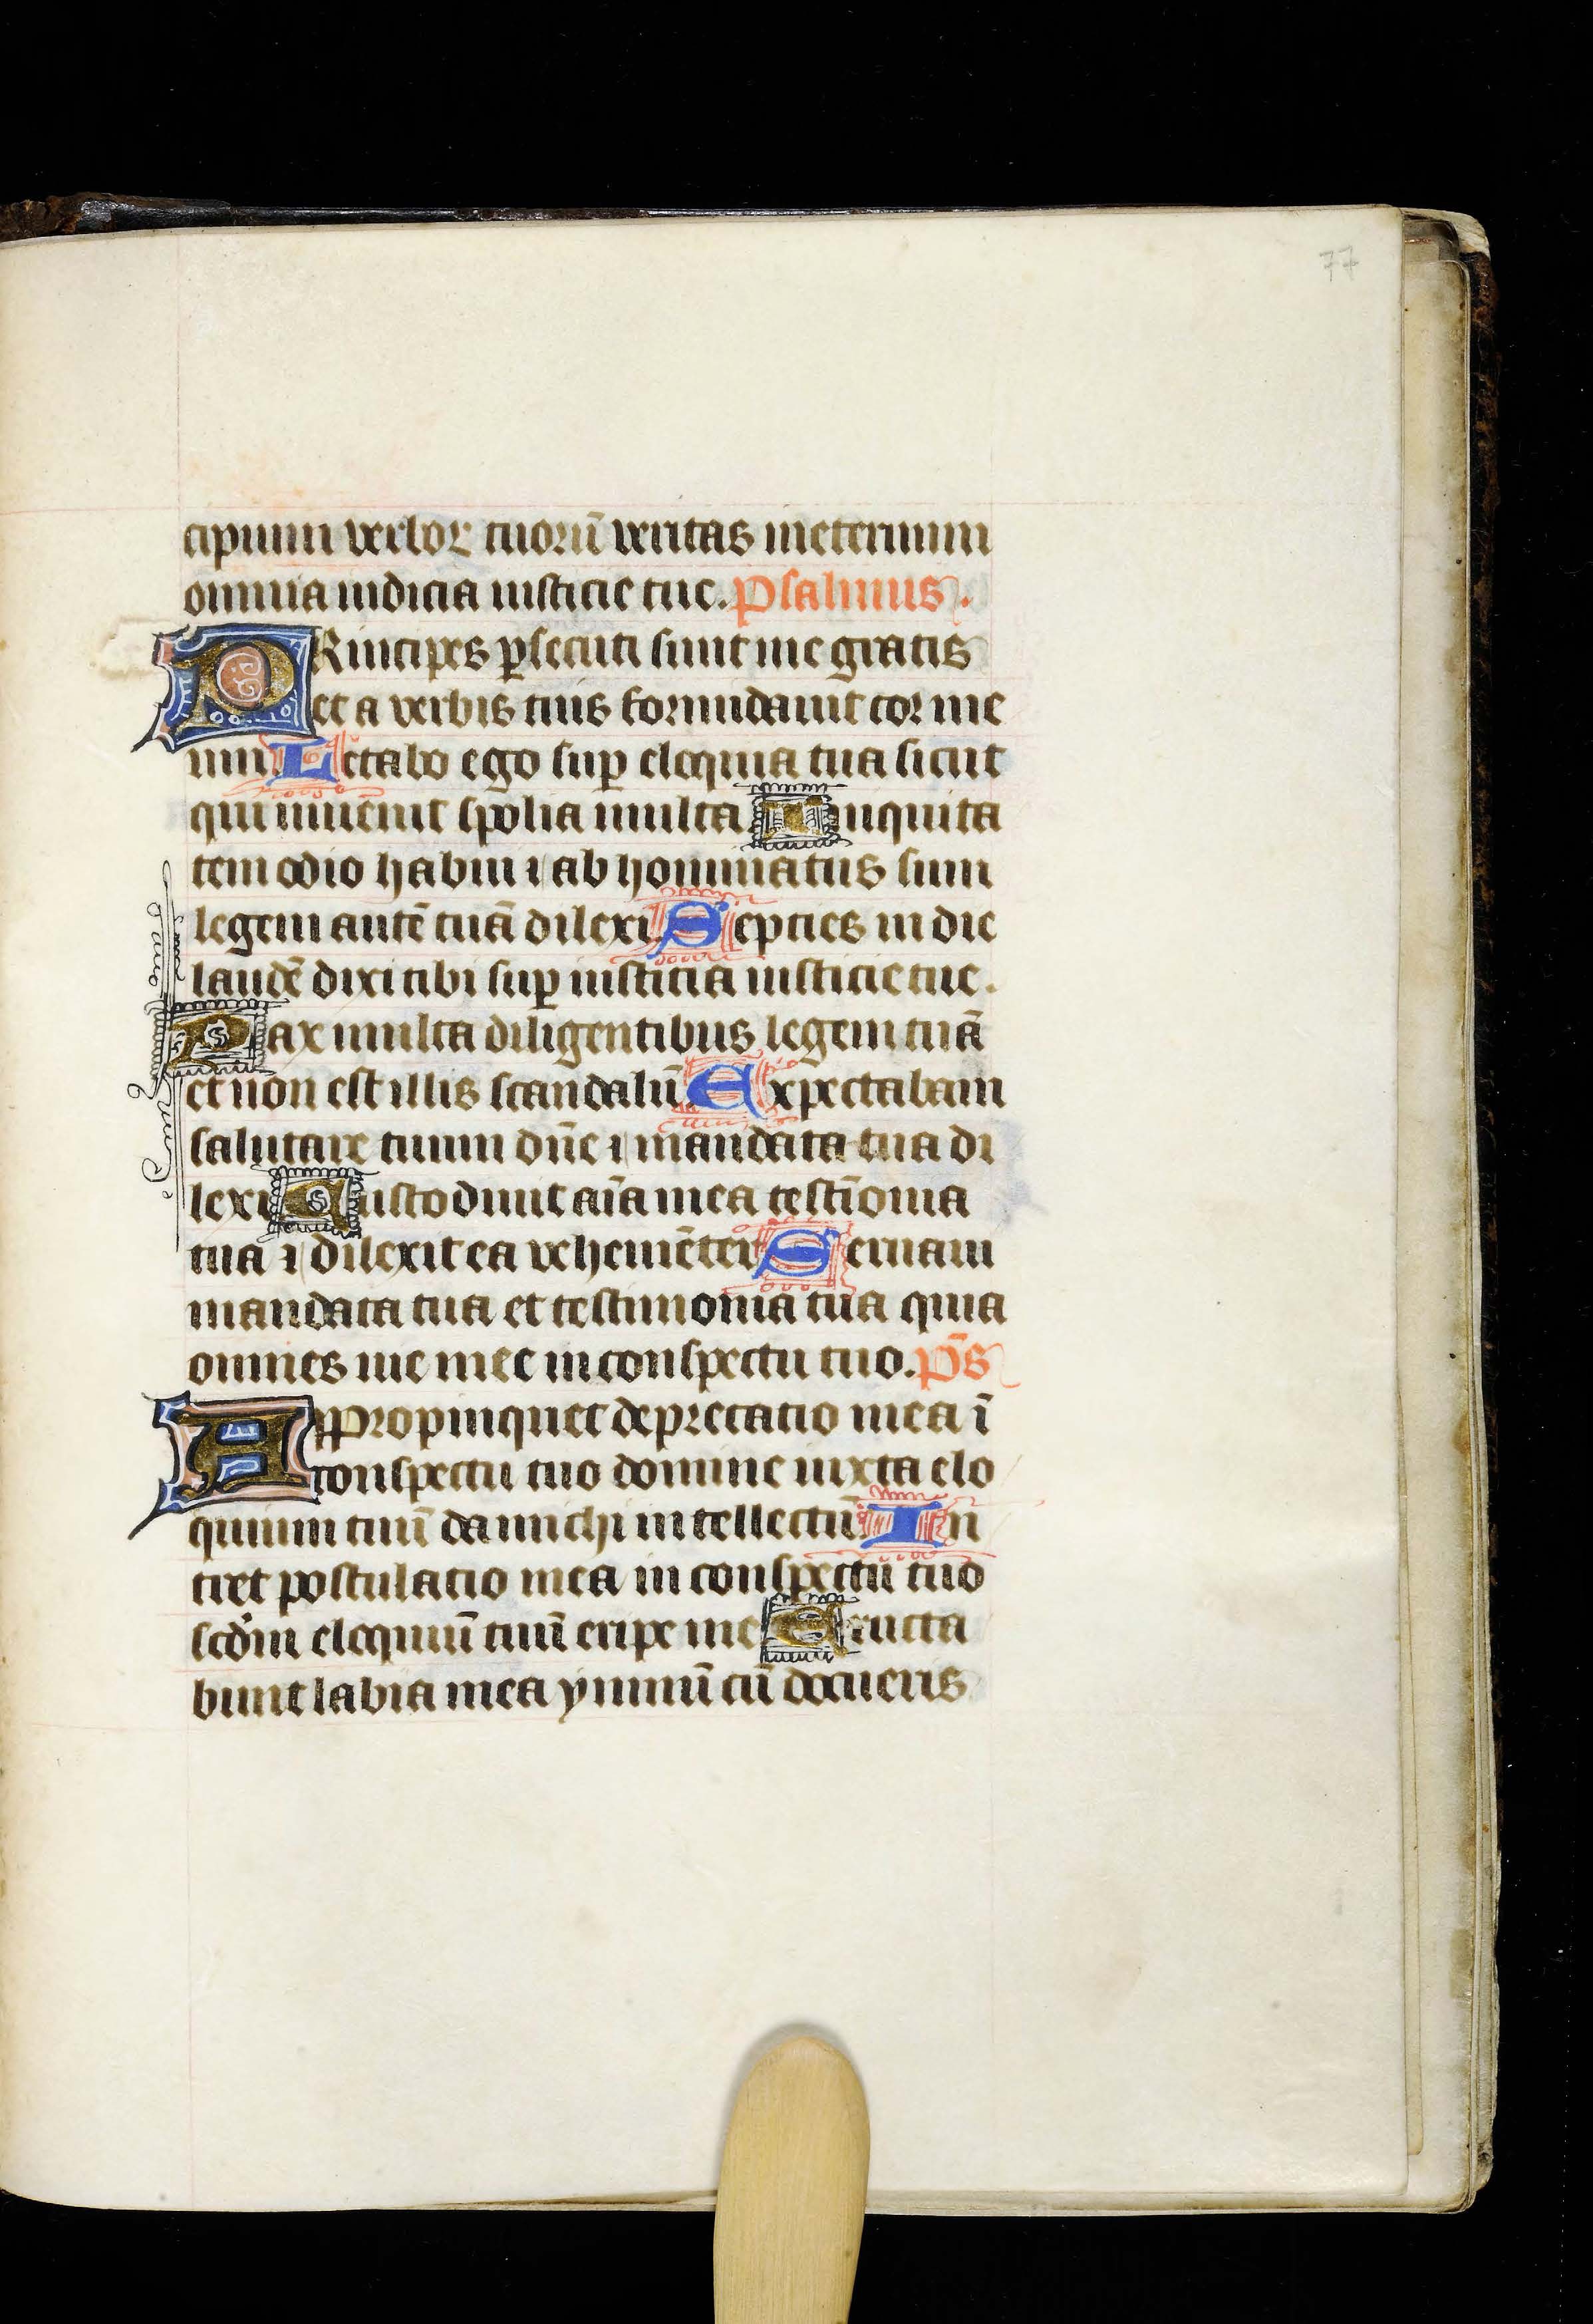 77
cipium verboꝝ tuorū veritas ineternum
omnia iudicia iusticie tue. Psalmus.
PRincipes ꝑsecuti sunt me gratis
et a verbis tuis formidauit cor me
um Letabo ego suꝑ eloquia tua sicut
qui inuenit spolia multa Iniquita
tem odio habui ⁊ abhominatus sum
legem autē tuā dilexi. Septies in die
laudē dixi tibi suꝑ iusticia iusticie tue.
Pax multa diligentibus legem tuā
et non est illis scandalū Expectabam
salutare tuum dn̄e ⁊ mandata tua di
lexi Custodiuit aīa mea testīonia
tua ⁊ dilexit ea vehemēter Seruaui
mandata tua et testimonia tua quia
omnes uie mee in conspectu tuo. p̄s
APpropinquet deprecatio mea ī
conspectu tuo domine iuxta elo
quium tuū da michi intellectū. In
tret postulacio mea in conspectu tuo
scd̄m eloquiū tuū eripe me Eructa
bunt labia mea ymnū cū docueris